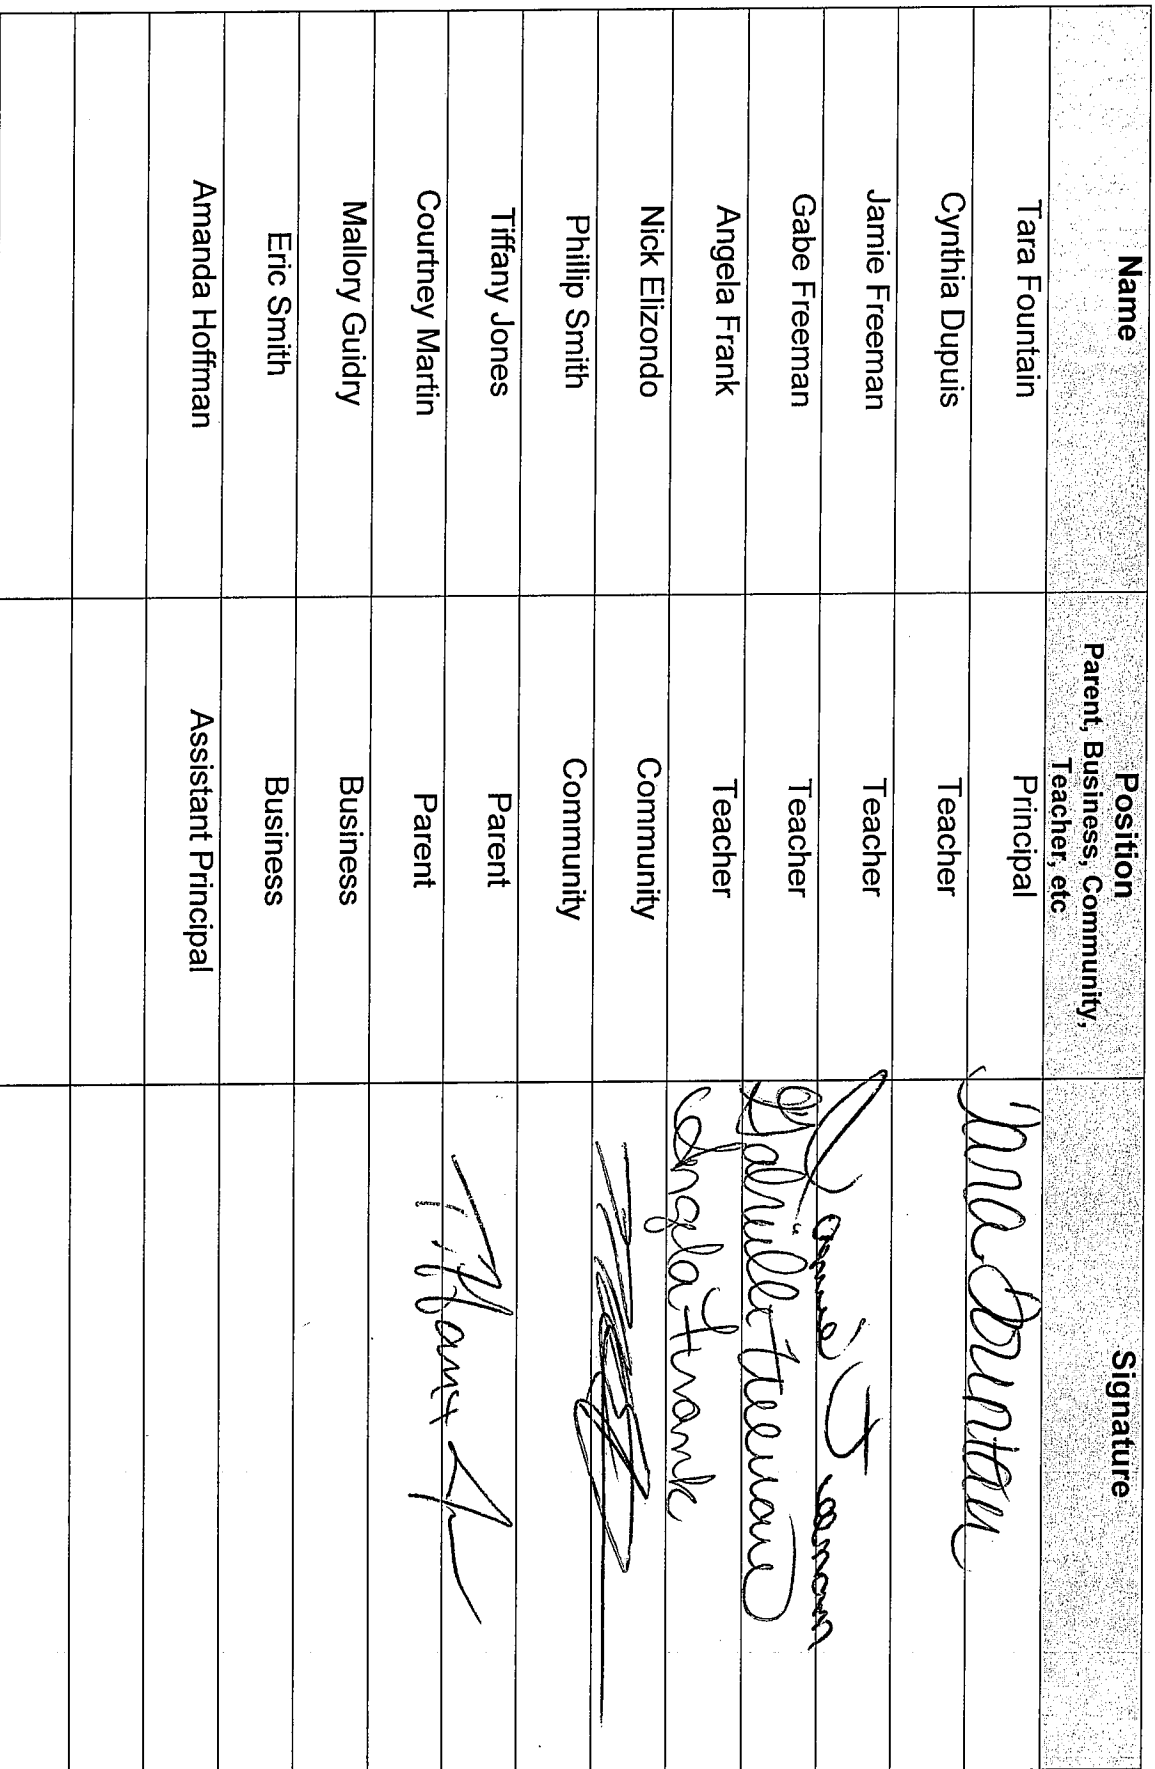 Name Position Signature
Parent, Business, Community,
Teacher, etc
Tara Fountain Principal Tara Fountain
Cynthia Dupuis Teacher
Jamie Freeman Teacher Jamie Freeman
Gabe Freeman Teacher Gabrielle Freeman
Angela Frank Teacher Angela Frank
Nick Elizondo Community
Phillip Smith Community
Tiffany Jones Parent Tiffany
Courtney Martin Parent
Mallory Guidry Business
Eric Smith Business
Amanda Hoffman Assistant Principal